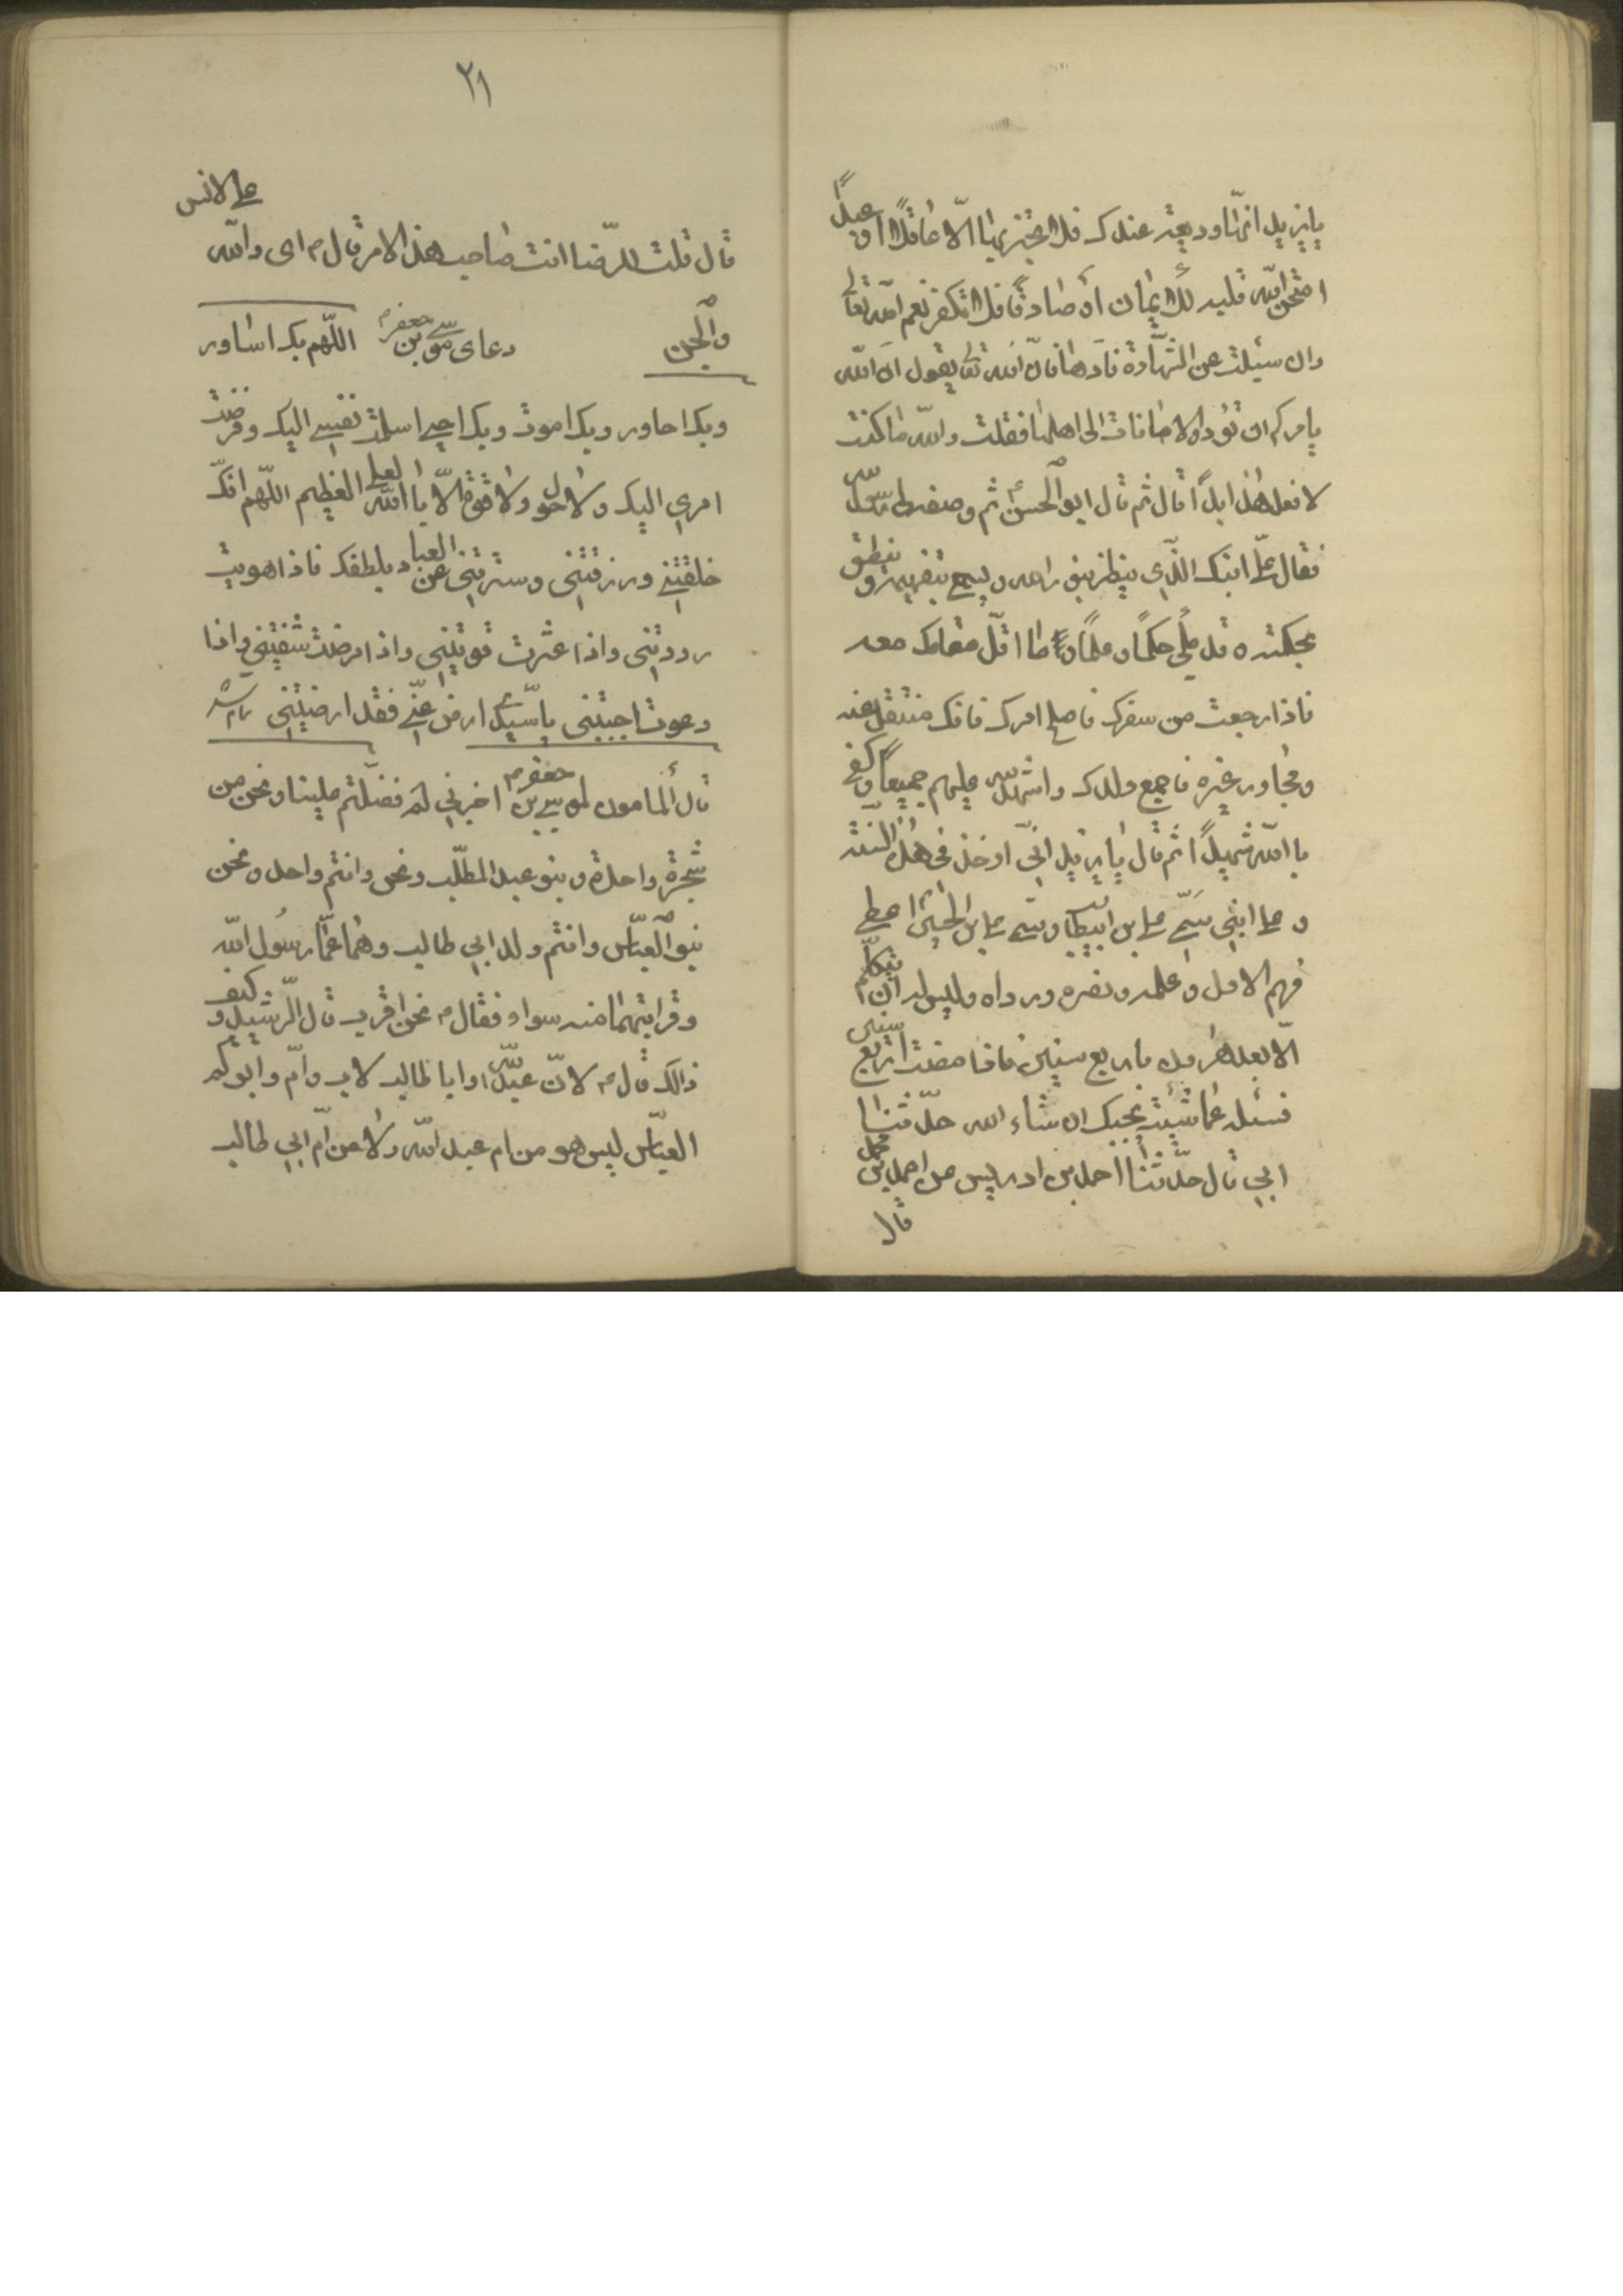 يا يزيد انها وديعة عندك فلا تخبر بها الا عاقلا او عبدا
امتحن الله قلبه للايمان او صادقا فلا تكفر نعم الله تعالى
وان سئلت عن الشهادة فادها فان الله تعالى يقول ان الله
يامركم ان تؤدوا الامانات الى اهلها فقلت والله ما كنت
لافعل هذا ابدا قال ثم قال ابو الحسن ع ثم وصفه لى رسول الله
فقال على ابنك الذي ينظر بنور الله ويسمع بتفهيمه وينطق
بحكمته قد ملى حكما وعلما وما اقل مقامك معه
فاذا رجعت من سفرك فاصلح امرك فانك منتقل عنه
ومجاور غيره فاجمع ولدك واشهد الله عليهم جميعا وكفى
باالله شهيدا ثم قال يا يزيد انى اوخذ فى هذه السنة
وعلى ابنى سمى على بن ابيطالب وسمى على بن الحسين اعطى
فهم الاول وعلمه ونصره ورداه وليس له ان يتكلم
الا بعد هرون باربع سنين فاذا مضت اربع سنين
فسئله عما شئت يجبك ان شاء الله حدثنا
ابى قال حدثنا احمد بن ادريس عن احمد بن محمد
قال
٢١
قال قلت للرضا انت صاحب هذا الامر قال ع اى والله على الانس
والجن دعاى موسى بن جعفر ع اللهم بك اساور
وبك احاور وبك اموت وبك احيى اسلمت نفسى اليك وفوضت
امرى اليك ولا حول ولا قوة الا باالله العلى العظيم اللهم انك
خلقتنى ورزقتنى وسترتنى عن العباد بلطفك فاذا هويت
رددتنى واذا عثرت قويتنى واذا مرضت شفيتنى واذا
دعوت اجبتنى ياسيدى ارض عنى فقد ارضيتنى تام شد
قال المامون لموسى بن جعفر ع اخبرنى لم فضلتم علينا ونحن من
شجرة واحدة وبنو عبد المطلب ونحن وانتم واحد ونحن
بنو العباس وانتم ولد ابى طالب وهما عما رسول الله
وقرابتهما منه سواء فقال ع نحن اقرب قال الرشيد وكيف
ذالك قال ع لان عبد الله وابا طالب لاب وام وابوكم
العباس ليس هو من ام عبد الله ولا من ام ابى طالب